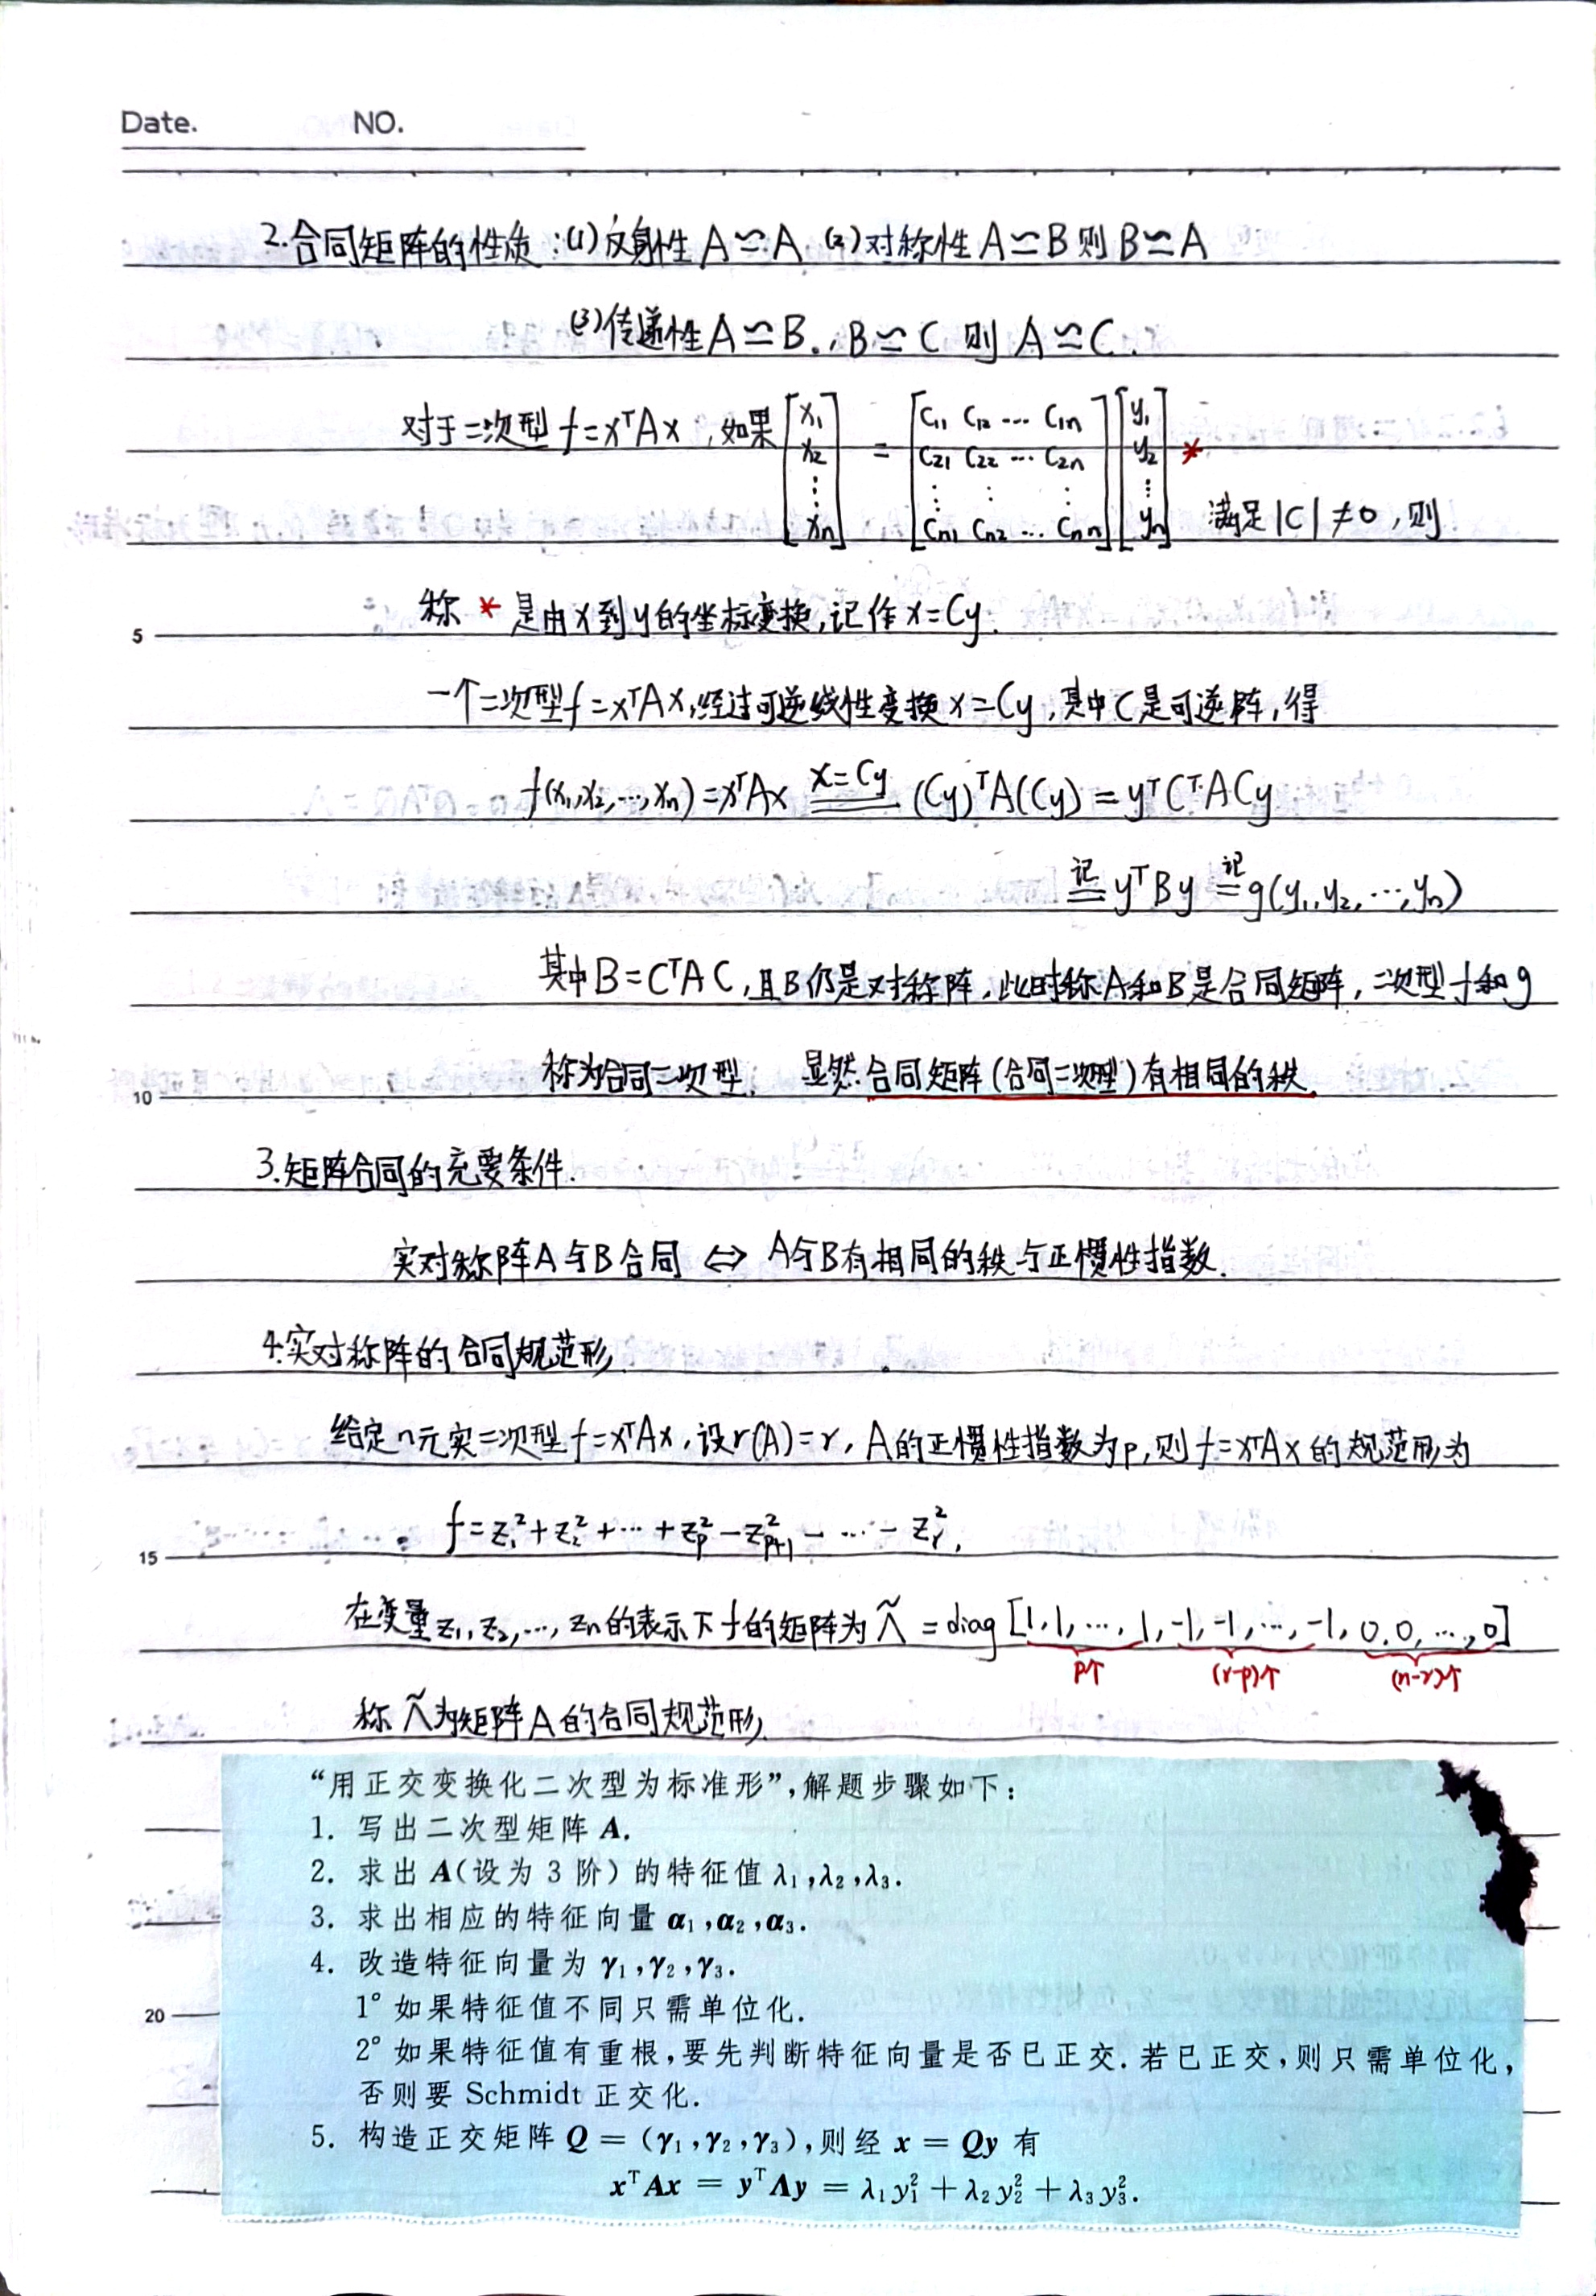 Date. NO.
2.合同矩阵的性质:(1)反身性 A≃A (2)对称性 A≃B 则 B≃A
(3)传递性 A≃B., B≃C 则 A≃C.
对于二次型 f=xᵀAx,如果 [x₁ x₂ ⋮ xₙ] = [c₁₁ c₁₂ … c₁ₙ; c₂₁ c₂₂ … c₂ₙ; ⋮ ⋮ ⋮; cₙ₁ cₙ₂ … cₙₙ] [y₁ y₂ ⋮ yₙ] * 满足|C|≠0,则
称 * 是由x到y的坐标变换,记作x=Cy.
5
一个二次型f=xᵀAx,经过可逆线性变换x=Cy,其中C是可逆阵,得
f(x₁,x₂,…,xₙ)=xᵀAx ==(x=Cy)== (Cy)ᵀA(Cy) = yᵀCᵀACy
记= yᵀBy 记= g(y₁,y₂,…,yₙ)
其中B=CᵀAC,且B仍是对称阵,此时称A和B是合同矩阵,二次型f和g
称为合同二次型. 显然.合同矩阵(合同二次型)有相同的秩.
10
3.矩阵合同的充要条件.
实对称阵A与B合同 ⇔ A与B有相同的秩与正惯性指数.
4.实对称阵的合同规范形.
给定n元实二次型f=xᵀAx,设r(A)=r, A的正惯性指数为p,则f=xᵀAx的规范形为
f=z₁²+z₂²+…+z_p²−z_{p+1}²−…−z_r².
15
在变量z₁,z₂,…,zₙ的表示下f的矩阵为Λ̃=diag[1,1,…,1,-1,-1,…,-1,0,0,…,0]
p个 (r-p)个 (n-r)个
称Λ̃为矩阵A的合同规范形.
“用正交变换化二次型为标准形”,解题步骤如下:
1. 写出二次型矩阵 A.
2. 求出 A(设为 3 阶)的特征值 λ₁,λ₂,λ₃.
3. 求出相应的特征向量 α₁,α₂,α₃.
4. 改造特征向量为 γ₁,γ₂,γ₃.
1° 如果特征值不同只需单位化.
20
2° 如果特征值有重根,要先判断特征向量是否已正交.若已正交,则只需单位化,
否则要 Schmidt 正交化.
5. 构造正交矩阵 Q = (γ₁,γ₂,γ₃),则经 x = Qy 有
xᵀAx = yᵀΛy = λ₁y₁² + λ₂y₂² + λ₃y₃².